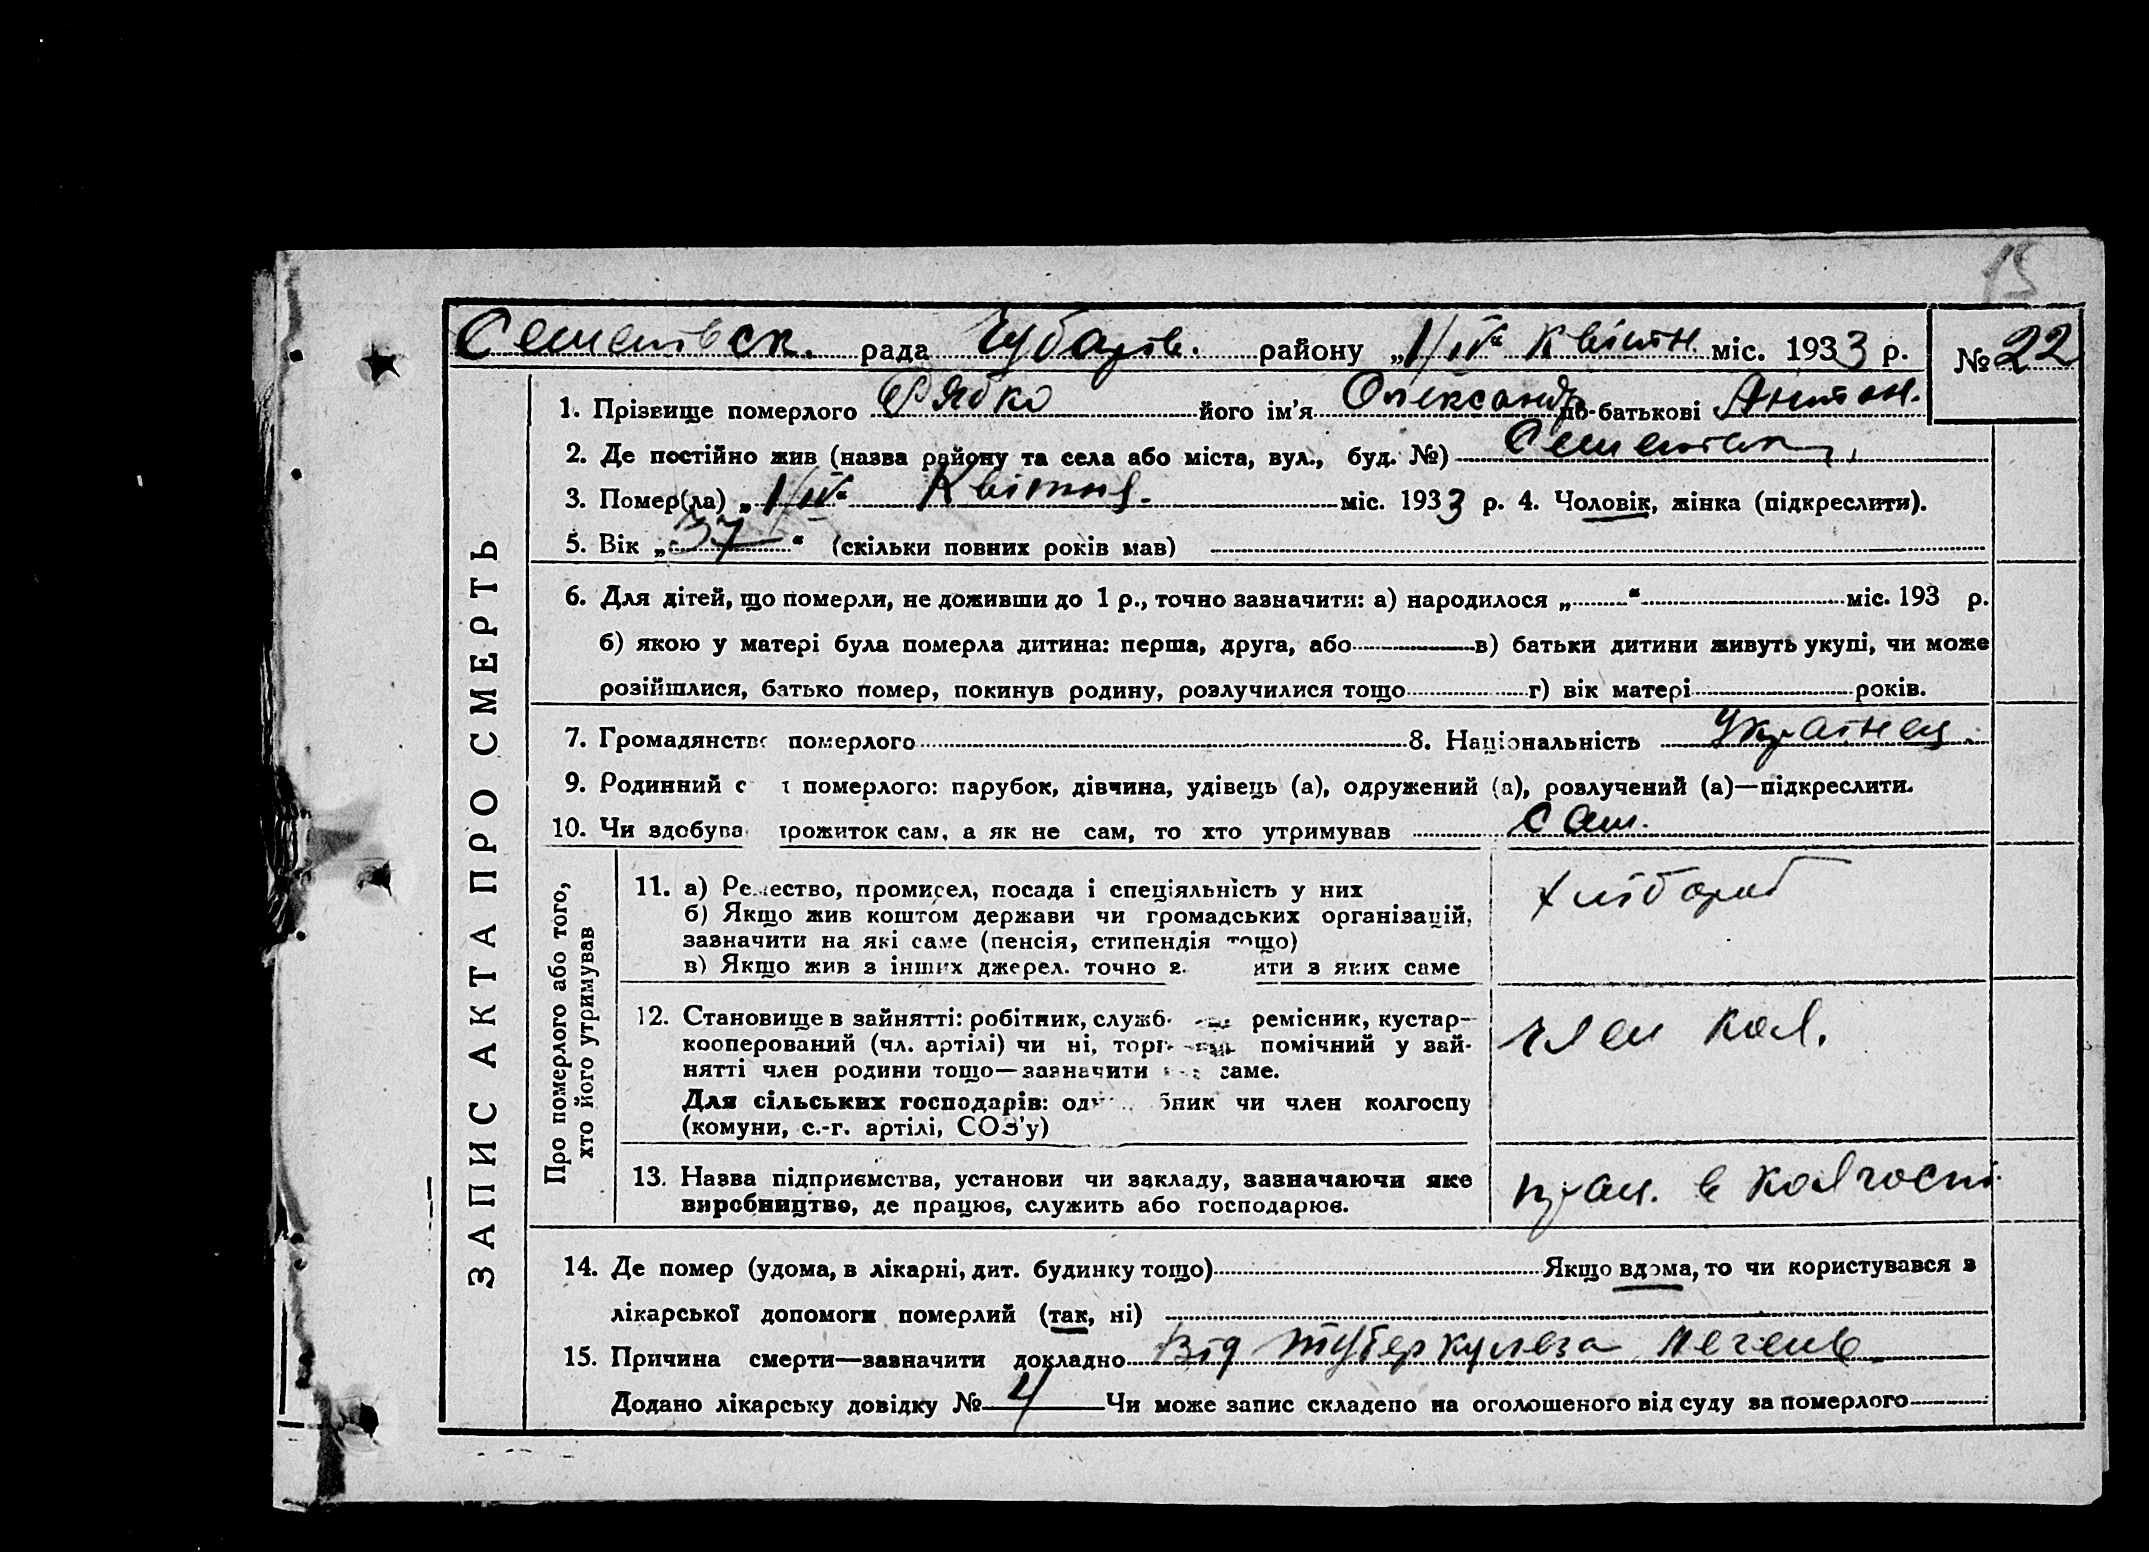 15
Семенівськ. рада Чубарів. району „1/IV“ Квітн. міс. 1933 р. № 22
1. Прізвище померлого Рябко його ім'я Олександр по-батькові Антон.
2. Де постійно жив (назва району та села або міста, вул., буд. №)
3. Помер(ла) „1/IV“ Квітня. міс. 1933 р. 4. Чоловік, жінка (підкреслити).
5. Вік „37“ (скільки повних років мав)
6. Для дітей, що померли, не доживши до 1 р., точно зазначити: а) народилося „ “ міс. 193 р.
б) якою у матері була померла дитина: перша, друга, або в) батьки дитини живуть укупі, чи може
розійшлися, батько помер, покинув родину, розлучилися тощо г) вік матері років.
7. Громадянство померлого 8. Національність Українец.
9. Родинний с т померлого: парубок, дівчина, удівець (а), одружений (а), розлучений (а)—підкреслити.
10. Чи здобува прожиток сам, а як не сам, то хто утримував сам.
11. а) Ремество, промисел, посада і спеціяльність у них хлібороб
б) Якщо жив коштом держави чи громадських організацій,
зазначити на які саме (пенсія, стипендія тощо)
в) Якщо жив з інших джерел. точно з ити з яких саме
12. Становище в зайнятті: робітник, службо ремісник, кустар-
кооперований (чл. артілі) чи ні, торг помічний у зай-
нятті член родини тощо—зазначити саме.
Для сільських господарів: од бник чи член колгоспу
(комуни, с.-г. артілі, СОЗ'у)
член кол.
13. Назва підприємства, установи чи закладу, зазначаючи яке
виробництво, де працює, служить або господарює.
прац. в колгоспі.
14. Де помер (удома, в лікарні, дит. будинку тощо) Якщо вдома, то чи користувався з
лікарської допомоги померлий (так, ні)
15. Причина смерти—зазначити докладно Від туберкулеза печень
Додано лікарську довідку № 4 Чи може запис складено на оголошеного від суду за померлого
ЗАПИС АКТА ПРО СМЕРТЬ
Про померлого або того,
хто його утримував